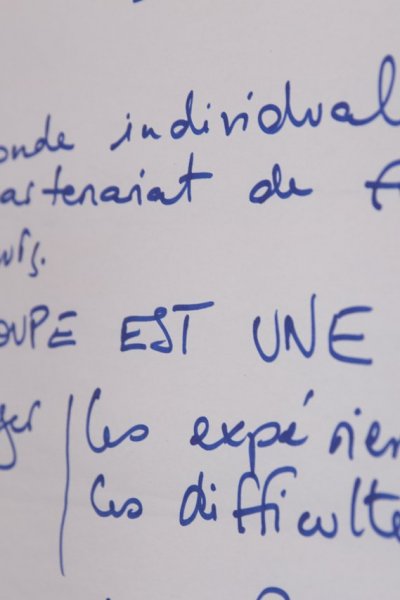 onde individual
artenariat de f
urs.
OUPE EST UNE
ger | les expérien
les difficulté